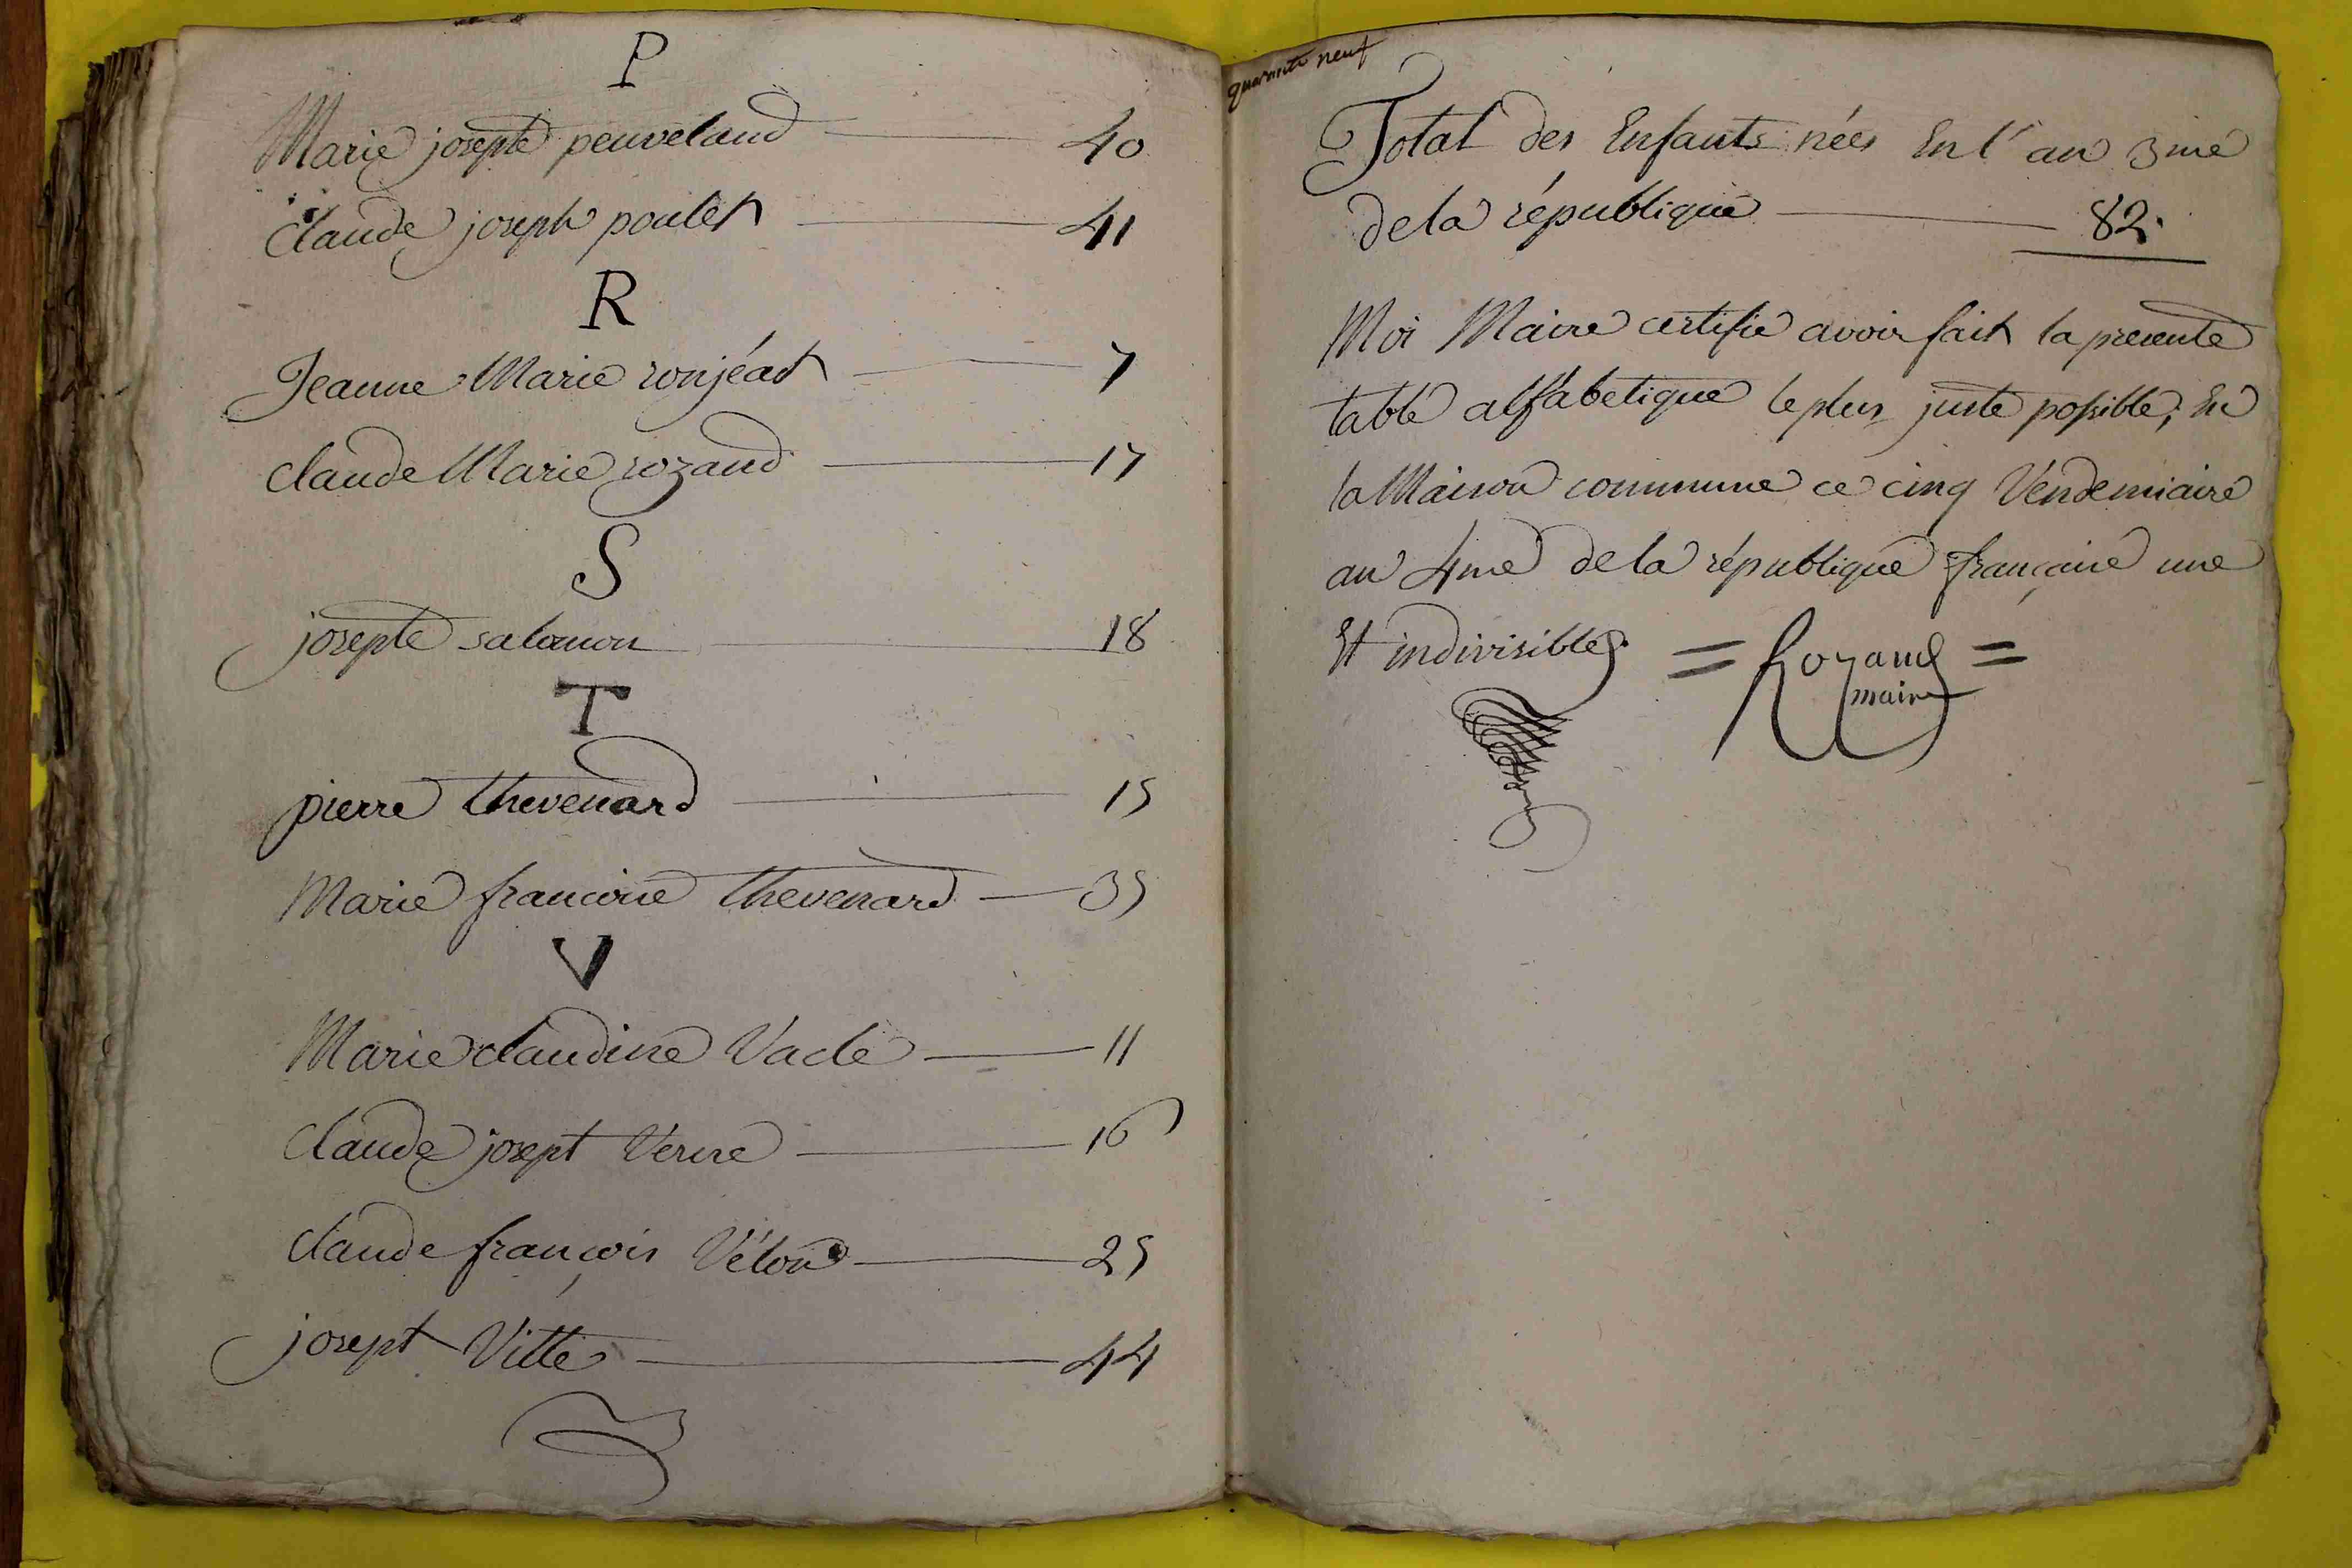 P
Marie josepte peuvelaud 40
claude joseph poulet 41
R
Jeanne Marie ronjéat 7
claude Marie rozand 17
S
josepte salomon 18
T
pierre thevenard 15
Marie francoise thevenard 35
V
Marie claudine Vacle 11
claude josept Verne 16
claude françois Vélon 25
josept Vitte 44
quarante neuf
Total des Enfants nées En l'an 3me
de la république 82.
Moi Maire certifie avoir fait la presente
table alfabetique le plus juste possible, En
la Maison commune ce cinq Vendemiaire
an 4me de la république française une
Et indivisible. = Rozand =
maire